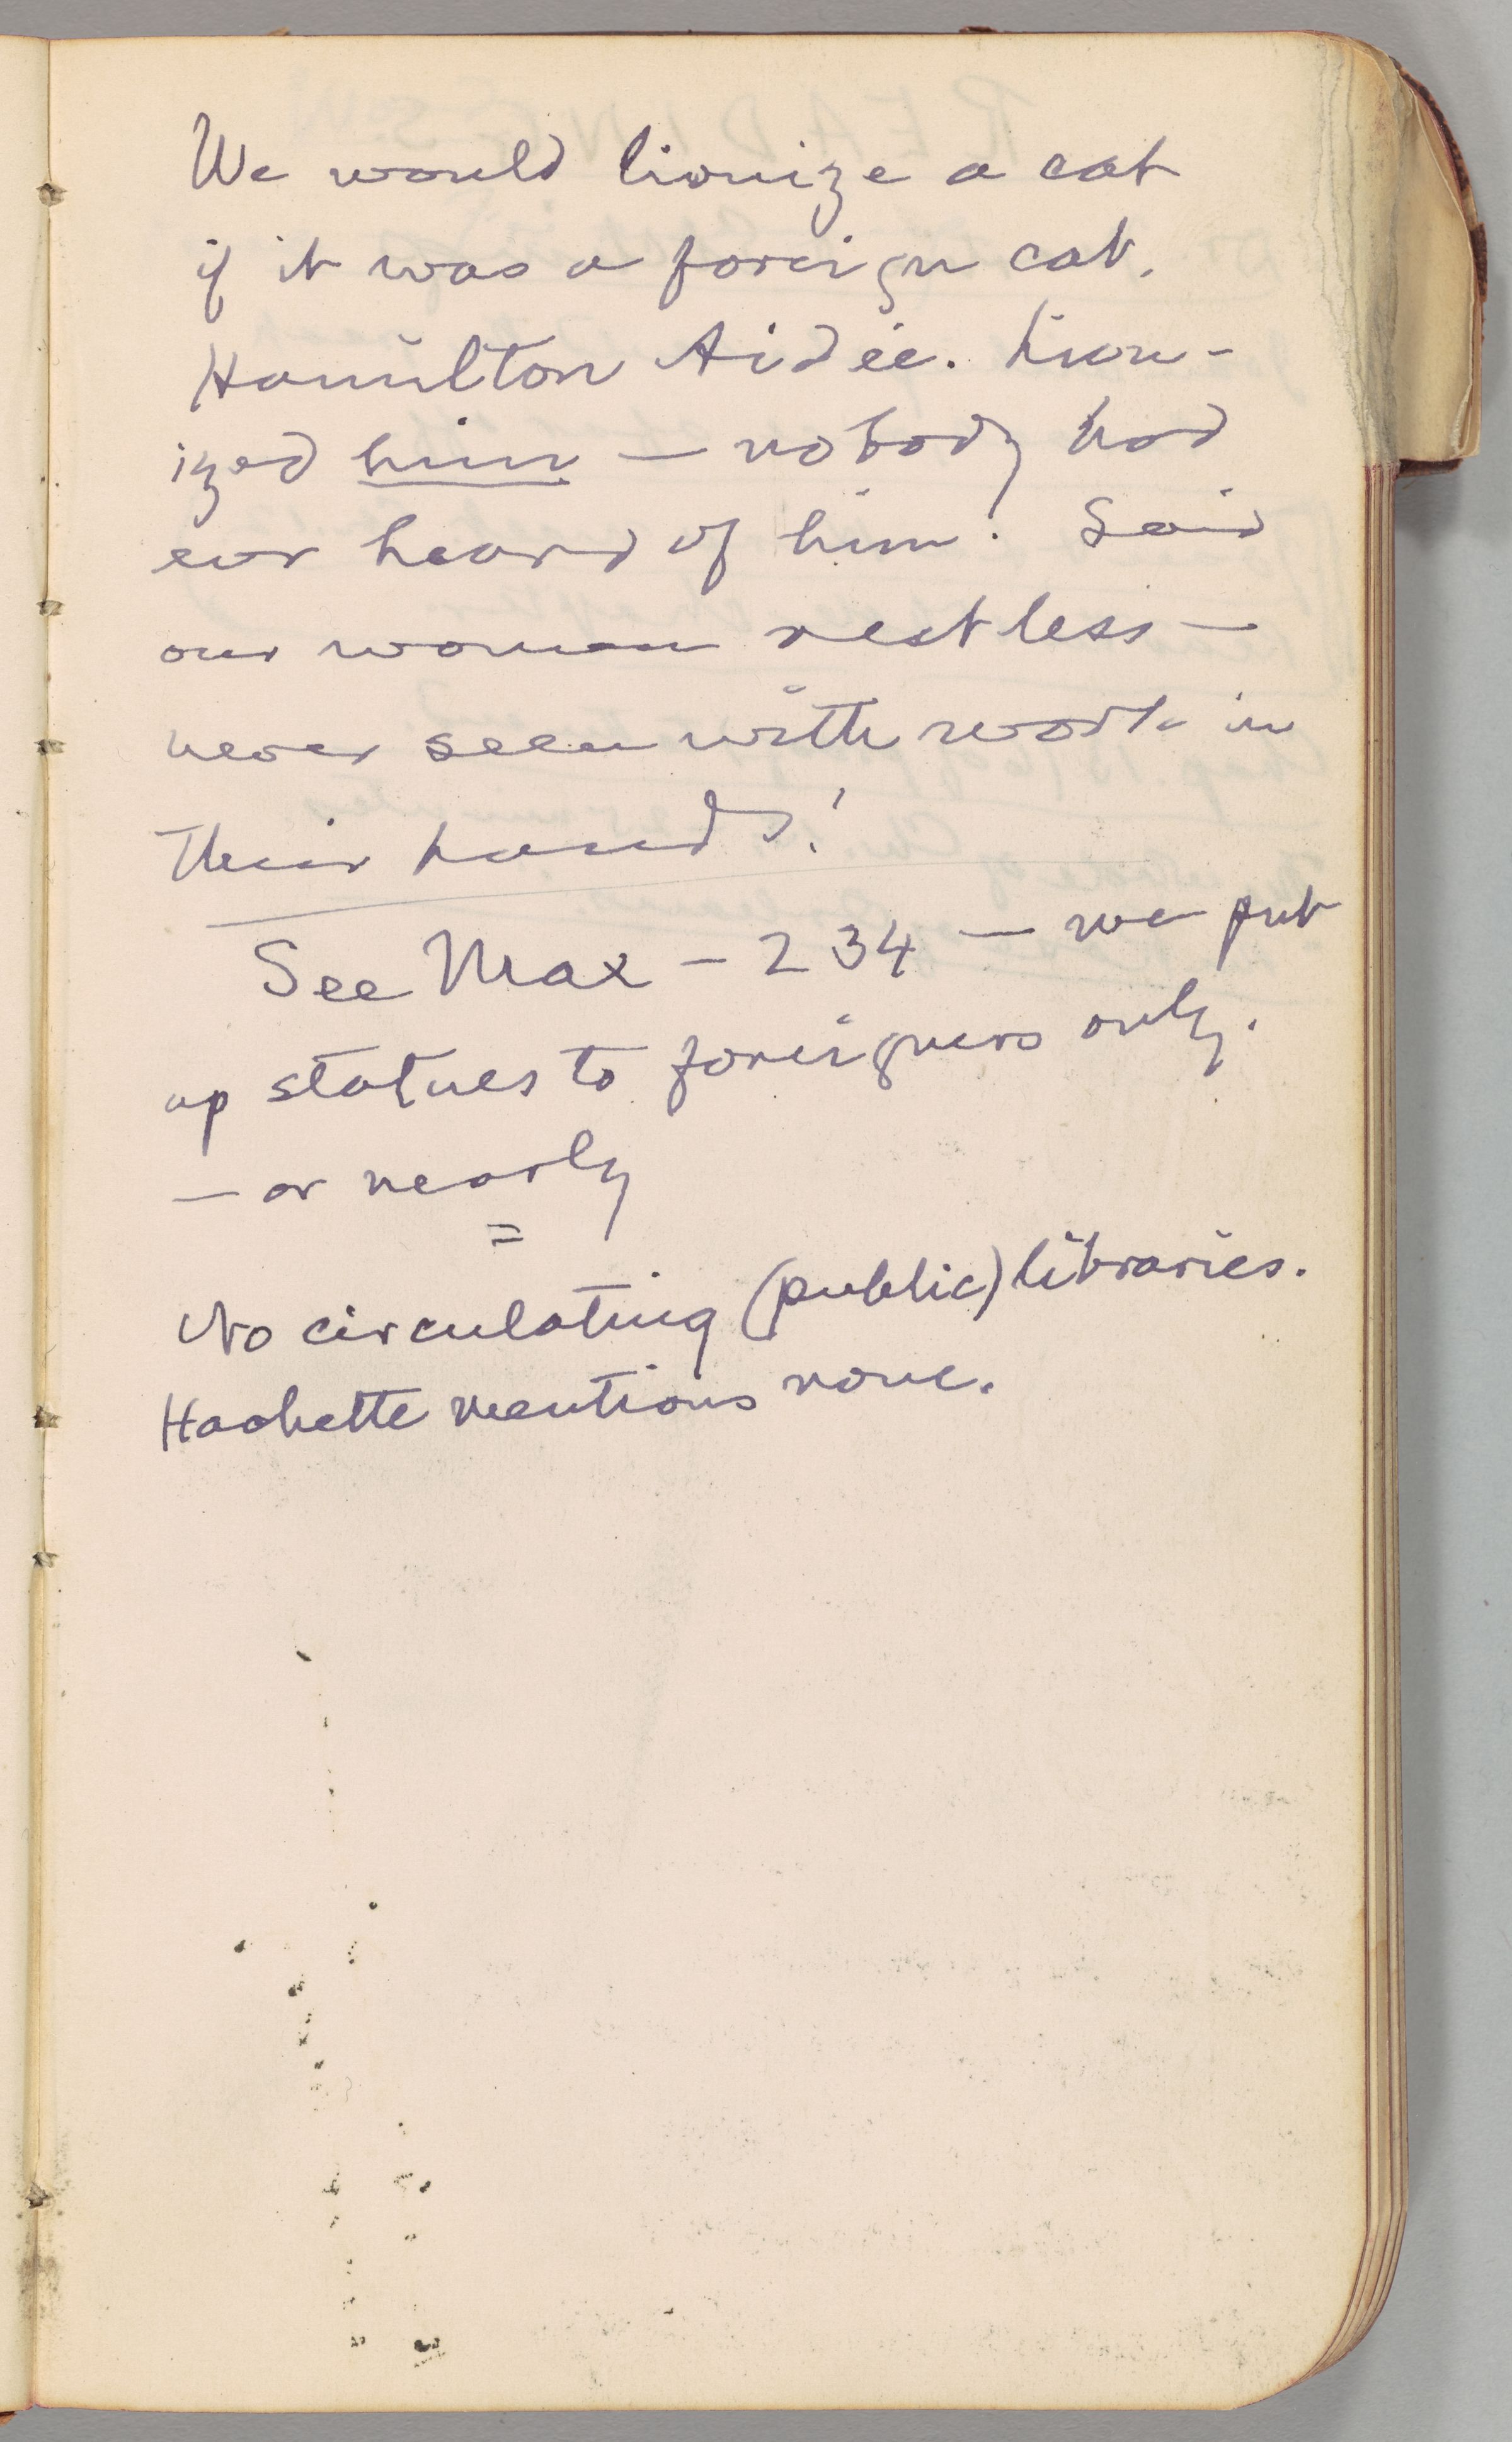 We would lionize a cat
if it was a foreign cat.
Hamilton Aidée. Lion-
ized him — nobody had
ever heard of him. Said
our women restless —
never seen with work in
their hands!
See Max — 234 — we put
up statues to foreigners only.
— or nearly
=
No circulating (public) libraries.
Hachette mentions none.